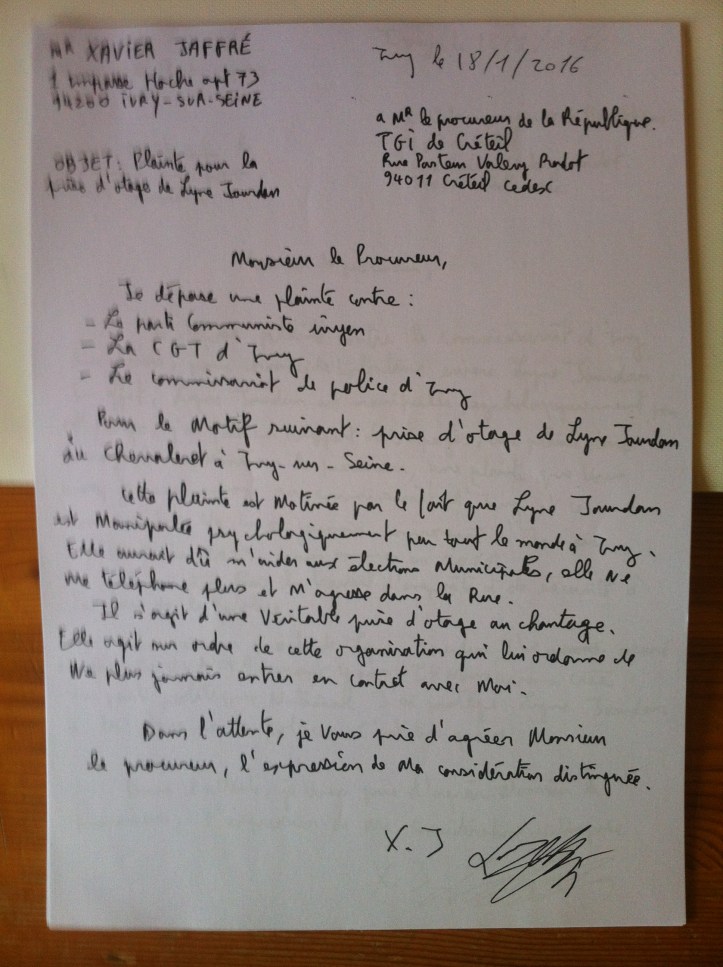 MR XAVIER JAFFRÉ
1 impasse Hoche apt 73
94200 IVRY-SUR-SEINE
Ivry le 18/1/2016
a MR le procureur de la République.
TGI de Créteil
Rue Pasteur Valery Radot
94011 Créteil cedex
OBJET: Plainte pour la
prise d'otage de Lyne Jourdan
Monsieur le Procureur,
Je dépose une plainte contre :
- Le parti Communiste ivryen
- La CGT d'Ivry
- Le commissariat de police d'Ivry
Pour le Motif suivant : prise d'otage de Lyne Jourdan
au Chevaleret à Ivry-sur-Seine.
Cette plainte est Motivée par le fait que Lyne Jourdan
est Manipulée psychologiquement par tout le monde à Ivry.
Elle aurait dû m'aider aux élections Municipales, elle Ne
me téléphone plus et M'agresse dans la Rue.
Il s'agit d'une Veritable prise d'otage au chantage.
Elle agit sur ordre de cette organisation qui lui ordonne de
Ne plus jamais entrer en contact avec Moi.
Dans l'attente, je Vous prie d'agréer Monsieur
le procureur, l'expression de Ma considération distinguée.
X.J